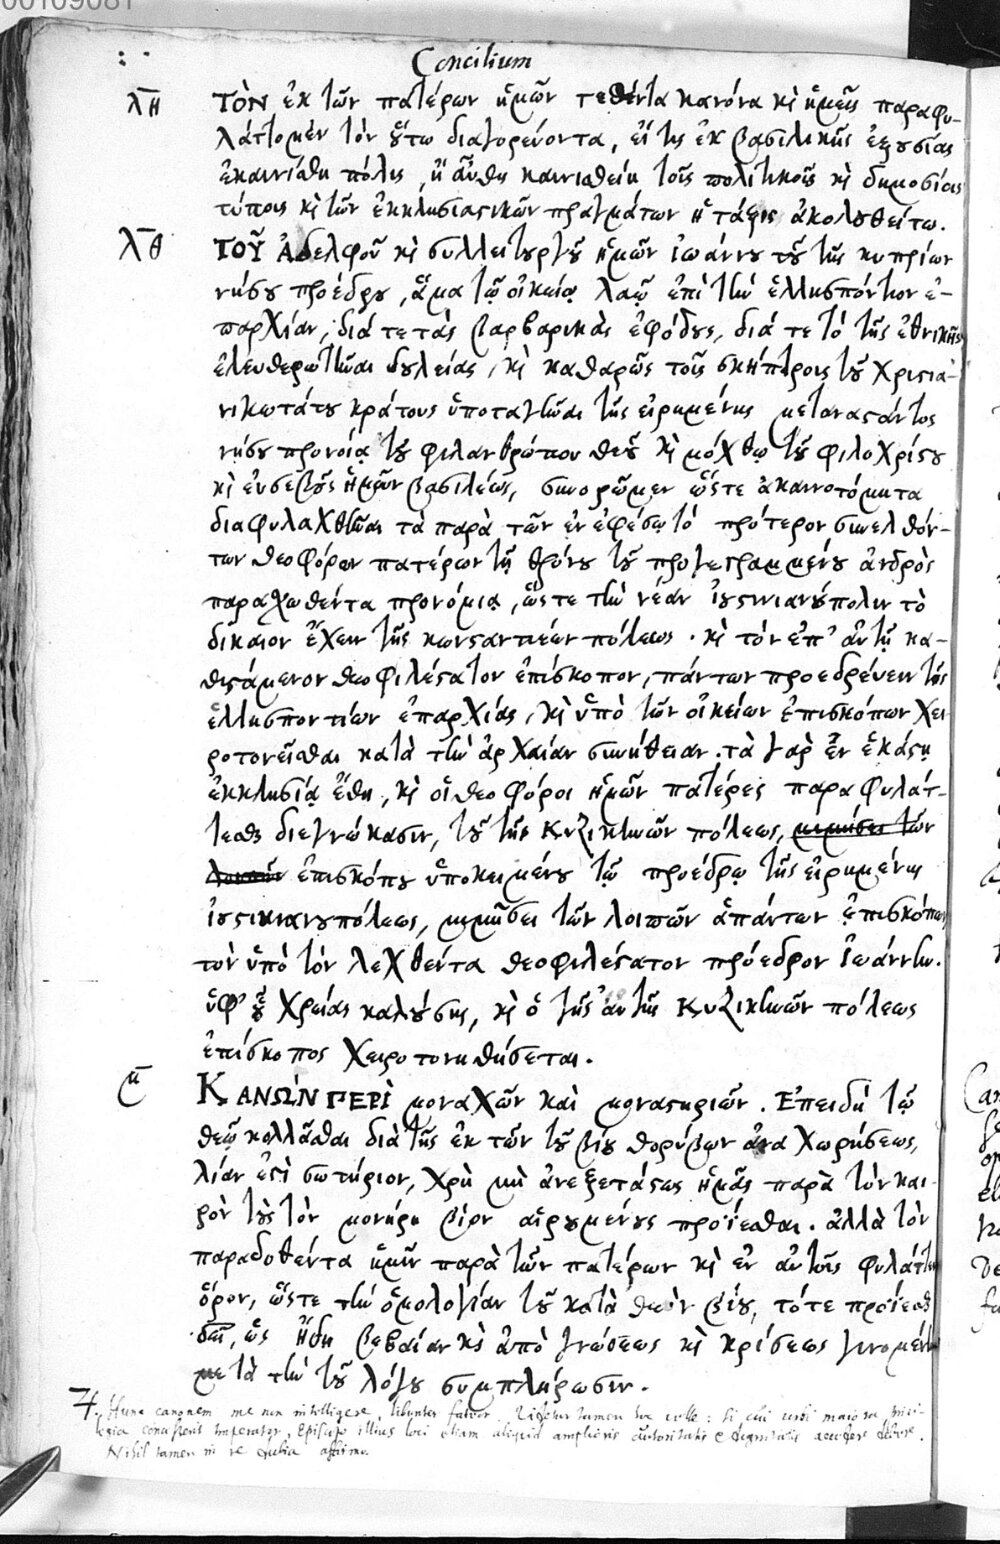 00109081
Concilium
λη ΤΟΝ ἐκ τῶν πατέρων ἡμῶν τεθέντα κανόνα κὶ ἡμεῖς παραφυ-
λάττομεν τὸν οὕτω διαγορεύοντα, εἴ τις ἐκ βασιλικῆς ἐξουσίας
ἐκαινίσθη πόλις, ἢ αὖθις καινισθείη τοῖς πολιτικοῖς κὶ δημοσίοις
τύποις κὶ τῶν ἐκκλησιαστικῶν πραγμάτων ἡ τάξις ἀκολουθείτω.
λθ ΤΟΥ͂ Ἀδελφοῦ κὶ συλλειτουργοῦ ἡμῶν ἰωάννου τοῦ τῆς κυπρίων
νήσου προέδρου, ἅμα τῷ οἰκείῳ λαῷ ἐπὶ τὴν ἑλλησπόντιον ἐ-
παρχίαν, διά τε τὰς βαρβαρικὰς ἐφόδους, διά τε τὸ τῆς ἐθνικῆς
ἐλευθερωθῆναι δουλείας, κὶ καθαρῶς τοῖς σκήπτροις τοῦ χριστια-
νικωτάτου κράτους ὑποταγῆναι τῆς εἰρημένης μεταναστάντος
νήσου προνοίᾳ τοῦ φιλανθρώπου θεοῦ κὶ μόχθῳ τοῦ φιλοχρίστου
κὶ εὐσεβοῦς ἡμῶν βασιλέως, συνορῶμεν ὥστε ἀκαινοτόμητα
διαφυλαχθῆναι τὰ παρὰ τῶν ἐν ἐφέσῳ τὸ πρότερον συνελθόν-
των θεοφόρων πατέρων τῷ θρόνῳ τοῦ προγεγραμμένου ἀνδρὸς
παρασχωθέντα προνόμια, ὥστε τὴν νέαν ἰουστινιανούπολιν τὸ
δίκαιον ἔχειν τῆς κωνσταντινέων πόλεως. κὶ τὸν ἐπ' αὐτῇ κα-
θιστάμενον θεοφιλέστατον ἐπίσκοπον, πάντων προεδρεύειν τῆς
ἑλλησποντίων ἐπαρχίας, κὶ ὑπὸ τῶν οἰκείων ἐπισκόπων χει-
ροτονεῖσθαι κατὰ τὴν ἀρχαίαν συνήθειαν. τὰ γὰρ ἐν ἑκάστῃ
ἐκκλησίᾳ ἔθη, κὶ οἱ θεοφόροι ἡμῶν πατέρες παραφυλάτ-
τεσθαι διεγνώκασιν, τοῦ τῆς Κυζικηνῶν πόλεως, μιμήσει τῶν
λοιπῶν ἐπισκόπου ὑποκειμένου τῷ προέδρῳ τῆς εἰρημένης
ἰουστινιανουπόλεως, μιμήσει τῶν λοιπῶν ἁπάντων ἐπισκόπων
τῶν ὑπὸ τὸν λεχθέντα θεοφιλέστατον πρόεδρον Ἰωάννην.
ὑφ' οὗ χρείας καλούσης, κὶ ὁ τῆς αὐτῆς Κυζικηνῶν πόλεως
ἐπίσκοπος χειροτονηθήσεται.
μ ΚΑΝΩΝ ΠΕΡΙ μοναχῶν καὶ μοναστηρίων. Ἐπειδὴ τῷ
θεῷ κολλᾶσθαι διὰ τῆς ἐκ τῶν τοῦ βίου θορύβων ἀναχωρήσεως,
λίαν ἐστὶ σωτήριον, χρὴ μὴ ἀνεξετάστως ἡμᾶς παρὰ τὸν και-
ρὸν τοὺς τὸν μονήρη βίον αἱρουμένους προσίεσθαι. ἀλλὰ τὸν
παραδοθέντα ἡμῖν παρὰ τῶν πατέρων κὶ ἐν αὐτοῖς φυλάττειν
ὅρον, ὥστε τὴν ὁμολογίαν τοῦ κατὰ θεὸν βίου, τότε προσίεσθαι
δεῖ, ὡς ἤδη βεβαίαν κὶ ἀπὸ γνώσεως κὶ κρίσεως γινομένην
μετὰ τὴν τοῦ λόγου συμπλήρωσιν.
74. Hunc canonem me non intelligere, libenter fateor. Videtur tamen hoc velle: si cui urbi maiora privi-
legia concesserit Imperator, Episcopo illius loci etiam aliquid amplioris autoritatis & dignitatis accedere debere.
Nihil tamen in re dubia affirmo.